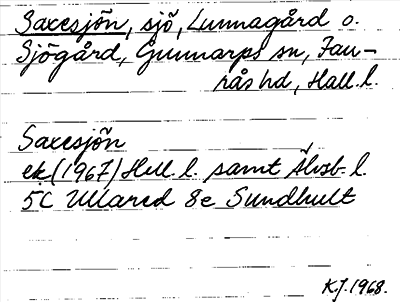 Saxesjön, sjö, Lunnagård o.
Sjögård, Gunnarps sn, Fau-
rås hd, Hall. l.
Saxesjön
ek (1967) Hall. l. samt Älvsb. l.
5C Ullared 8e Sundhult
K.J. 1968.